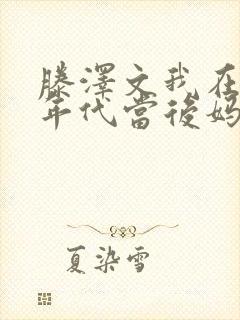 滕澤文我在
年代當後媽
夏染雪